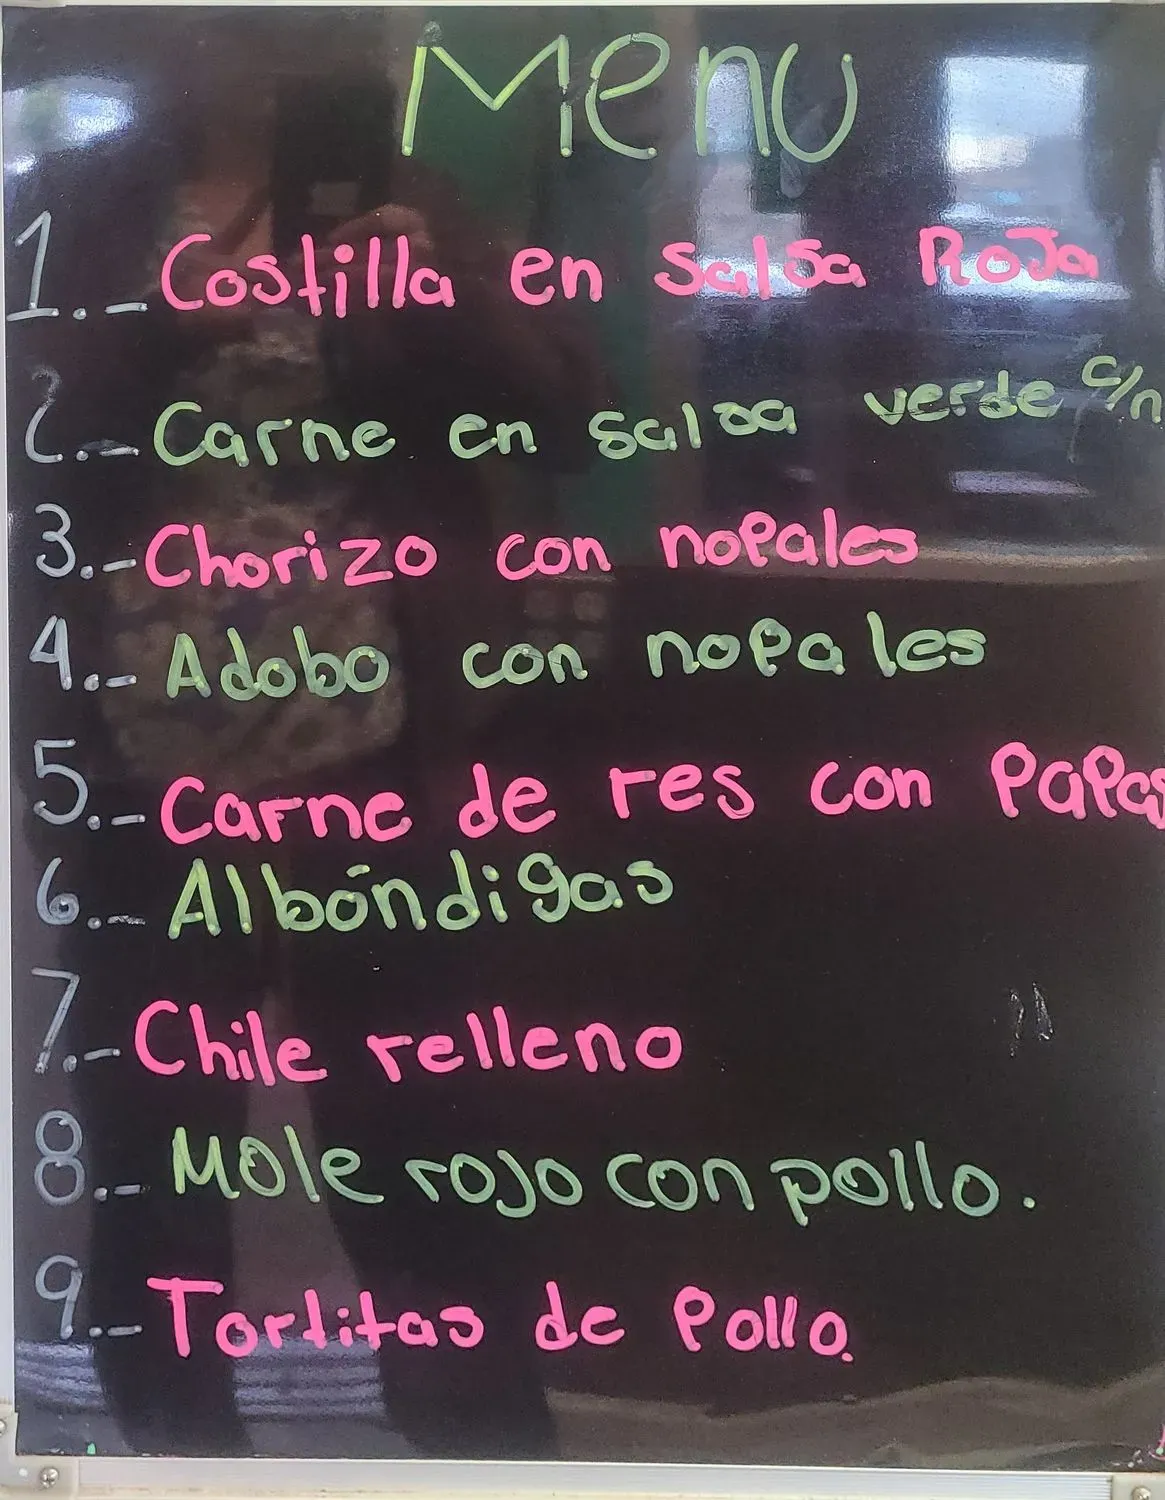 Menu
1.- Costilla en salsa Roja
2.- Carne en salsa verde c/n
3.- Chorizo con nopales
4.- Adobo con nopales
5.- Carne de res con Papas
6.- Albóndigas
7.- Chile relleno
8.- Mole rojo con pollo.
9.- Tortitas de Pollo.